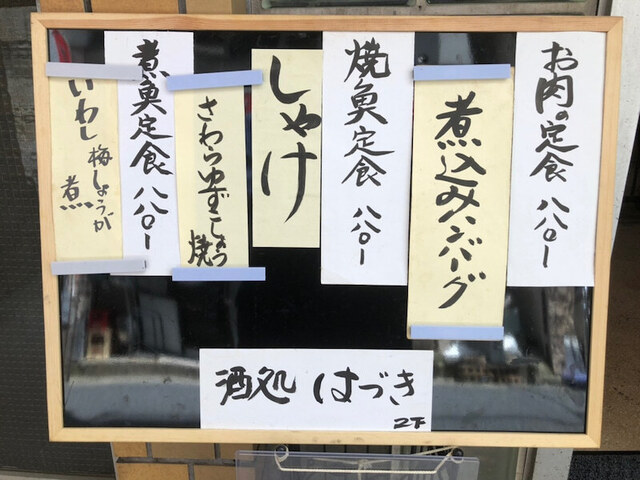 お肉の定食 八八〇ー
煮込みハンバーグ
焼魚定食 八八〇ー
しゃけ
さわらゆずこしょう焼
煮魚定食 八八〇ー
いわし梅しょうが煮
酒処 はづき
2F